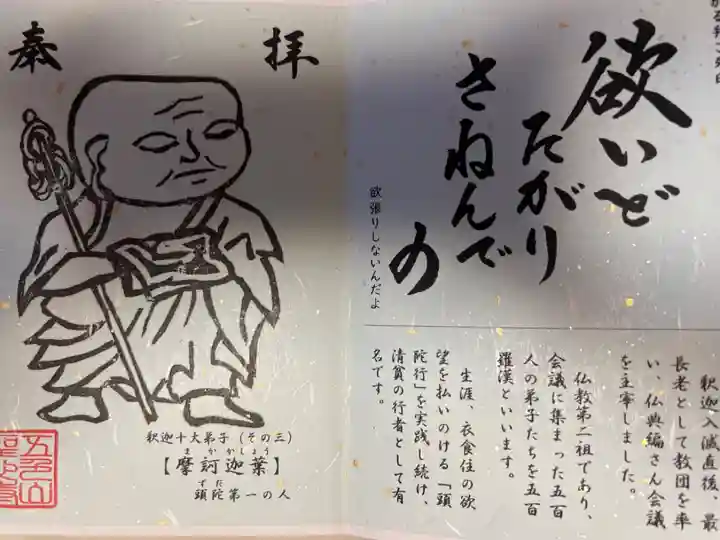 欲いど
たがり
さねんで
の
欲張りしないんだよ
釈迦入滅直後、最
長老として教団を率
い、仏典編さん会議
を主宰しました。
仏教第二祖であり、
会議に集まった五百
人の弟子たちを五百
羅漢といいます。
生涯、衣食住の欲
望を払いのける「頭
陀行」を実践し続け、
清貧の行者として有
名です。
奉拝
釈迦十大弟子(その三)
まかかしょう
【摩訶迦葉】
ずだ
頭陀第一の人